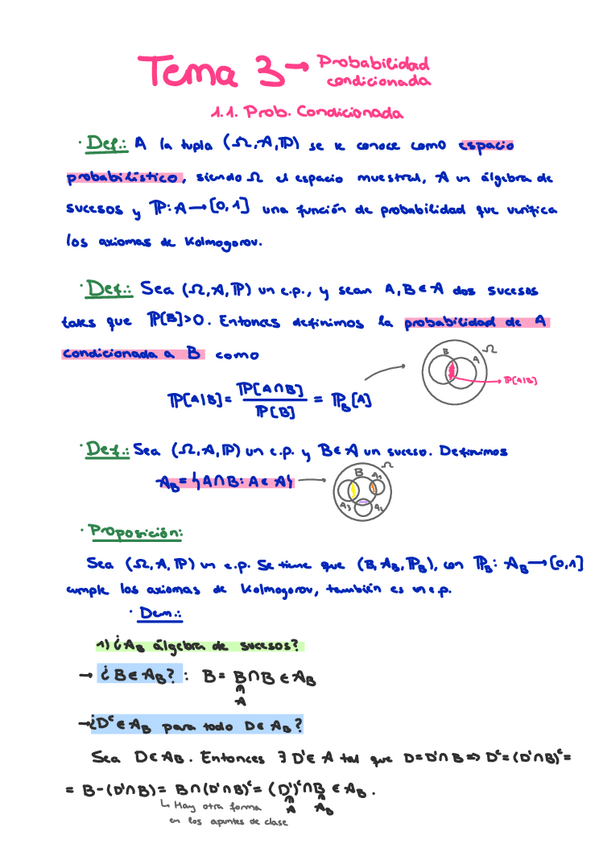 Tema 3 → Probabilidad condicionada
1.1. Prob. Condicionada
· Def.: A la tupla (Ω, A, ℙ) se le conoce como espacio
probabilístico, siendo Ω el espacio muestral, A un álgebra de
sucesos y ℙ: A → [0,1] una función de probabilidad que verifica
los axiomas de Kolmogorov.
· Def.: Sea (Ω, A, ℙ) un e.p., y sean A, B ∈ A dos sucesos
tales que ℙ[B]>0. Entonces definimos la probabilidad de A
condicionada a B como
B A Ω
ℙ[A|B]
ℙ[A|B] = ℙ[A∩B] / ℙ[B] = ℙ_B[A]
· Def.: Sea (Ω, A, ℙ) un e.p. y B ∈ A un suceso. Definimos
A_B = {A∩B : A ∈ A}
Ω B A₁ A₂ A₃
· Proposición:
Sea (Ω, A, ℙ) un e.p. Se tiene que (B, A_B, ℙ_B), con ℙ_B: A_B → [0,1]
cumple los axiomas de Kolmogorov, también es un e.p.
· Dem.:
1) ¿A_B álgebra de sucesos?
→ ¿B ∈ A_B? : B = B∩B ∈ A_B
∈
A
→ ¿Dᶜ ∈ A_B para todo D ∈ A_B?
Sea D ∈ A_B. Entonces ∃ D' ∈ A tal que D = D'∩B ⇒ Dᶜ = (D'∩B)ᶜ =
= B-(D'∩B) = B∩(D'∩B)ᶜ = (D')ᶜ∩B ∈ A_B.
↳ Hay otra forma
en los apuntes de clase
∈ A ∈ A_B